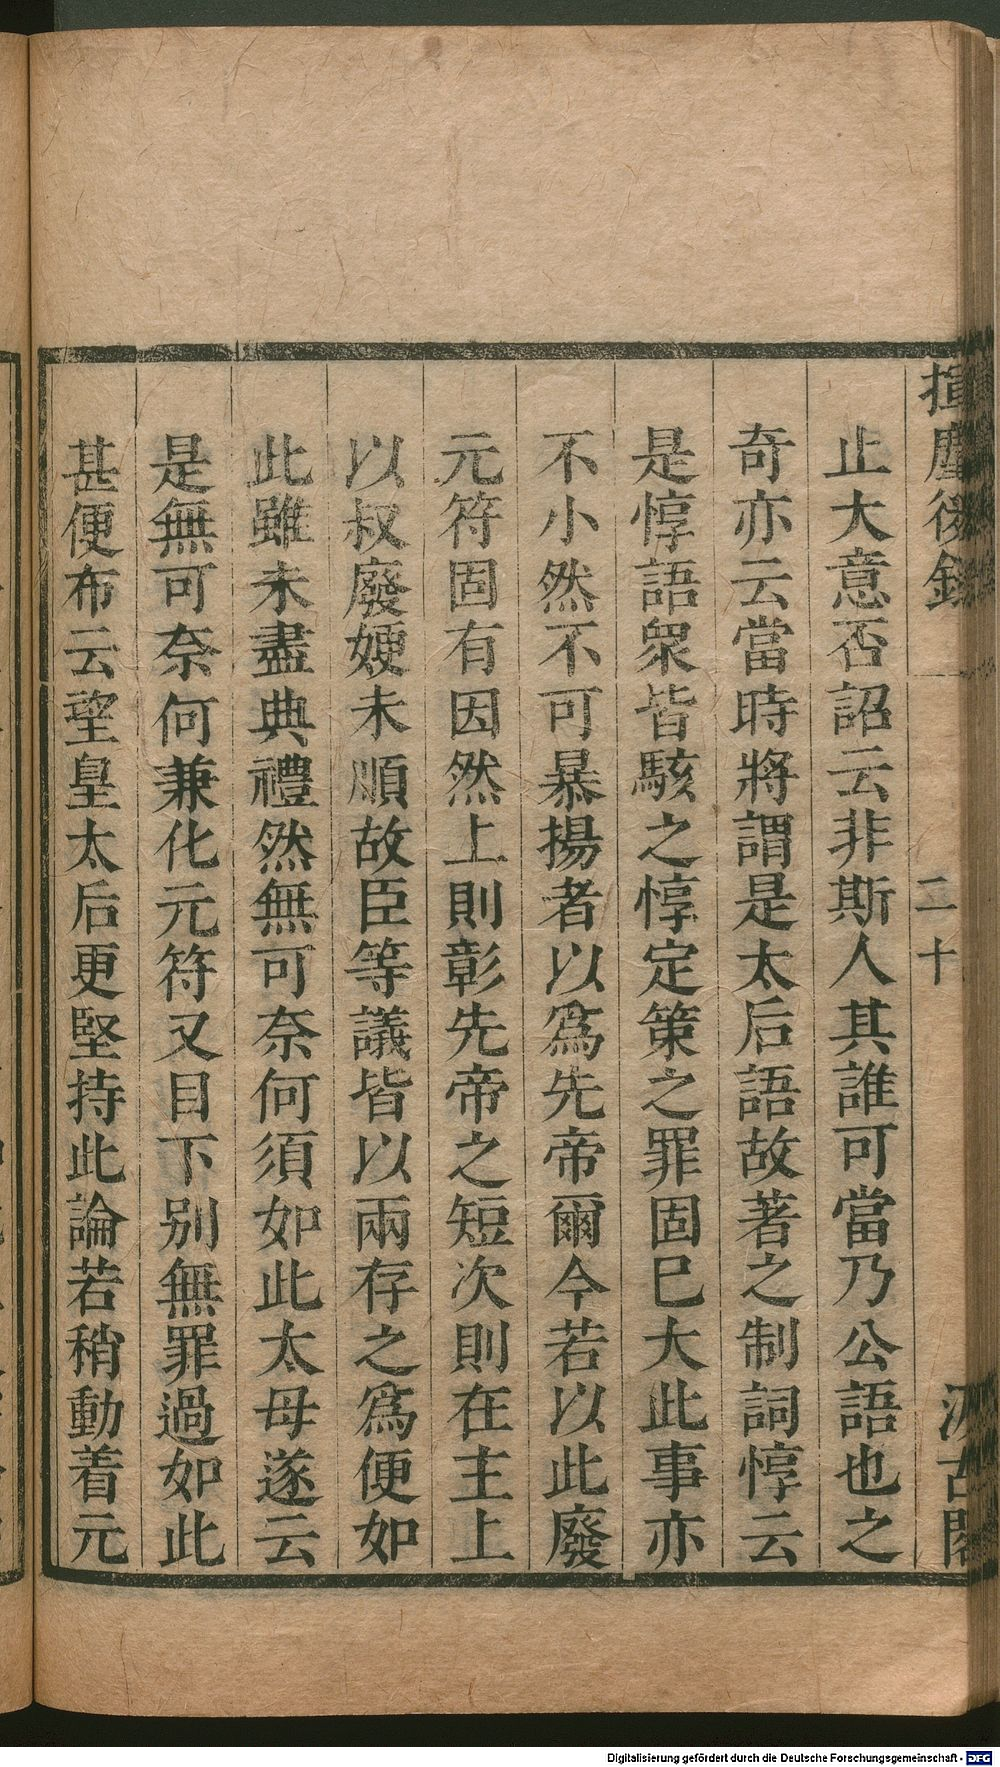 揮麈後錄
二十
汲古閣
止大意否詔云非斯人其誰可當乃公語也之
奇亦云當時將謂是太后語故著之制詞惇云
是惇語衆皆駭之惇定策之罪固巳大此事亦
不小然不可暴揚者以爲先帝爾今若以此廢
元符固有因然上則彰先帝之短次則在主上
以叔廢嫂未順故臣等議皆以兩存之爲便如
此雖未盡典禮然無可奈何須如此太母遂云
是無可奈何兼化元符又目下别無罪過如此
甚便布云望皇太后更堅持此論若稍動着元
Digitalisierung gefördert durch die Deutsche Forschungsgemeinschaft - DFG